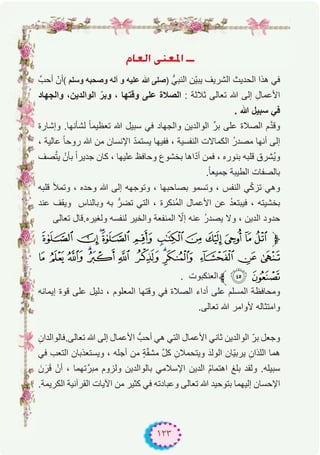 ـ المعنى العام
في هذا الحديث الشريف يبيّن النبيُّ (صلى الله عليه و آله وصحبه وسلم )أنّ أحبُّ
الأعمال إلى الله تعالى ثلاثة : الصلاة على وقتها ، وبرّ الوالدين، والجهاد
في سبيل الله .
وقدّم الصلاة على برّ الوالدين والجهاد في سبيل الله تعظيماً لشأنها. وإشارة
إلى أنها مصدرُ الكمالات النفسية ، ففيها يستمدّ الإنسان من الله روحاً عالية ،
ويُشرق قلبه بنوره ، فمن أدّاها بخشوع وحافظ عليها ، كان جديراً بأنْ يتّصف
بالصفات الطيبة جميعاً.
وهي تزكّي النفس ، وتسمو بصاحبها ، وتوجهه إلى الله وحده ، وتملأ قلبه
بخشيته ، فيبتعدُ عن الأعمال المُنكرة ، التي تضرُّ به وبالناس ويقف عند
حدود الدين ، ولا يصدرُ عنه إلّا المنفعة والخير لنفسه ولغيره.قال تعالى
﴿ اتْلُ مَا أُوحِيَ إِلَيْكَ مِنَ الْكِتَابِ وَأَقِمِ الصَّلَاةَ إِنَّ الصَّلَاةَ
تَنْهَىٰ عَنِ الْفَحْشَاءِ وَالْمُنكَرِ وَلَذِكْرُ اللَّهِ أَكْبَرُ وَاللَّهُ يَعْلَمُ مَا
تَصْنَعُونَ ٤٥ ﴾ العنكبوت .
ومحافظة المسلم على أداء الصلاة في وقتها المعلوم ، دليل على قوة إيمانه
وامتثاله لأوامر الله تعالى.
وجعل برّ الوالدين ثاني الأعمال التي هي أحبُّ الأعمال إلى الله تعالى.فالوالدانِ
هما اللذانِ يربيّان الولدَ ويتحملانِ كلّ مشقّةٍ من أجله ، ويستعذبان التعب في
سبيله. ولقد بلغ اهتمامُ الدين الإسلامي بالوالدين ولزوم مبرّتهما ، أنْ قَرَنَ
الإحسان إليهما بتوحيد الله تعالى وعبادته في كثير من الآيات القرآنية الكريمة.
١٢٣